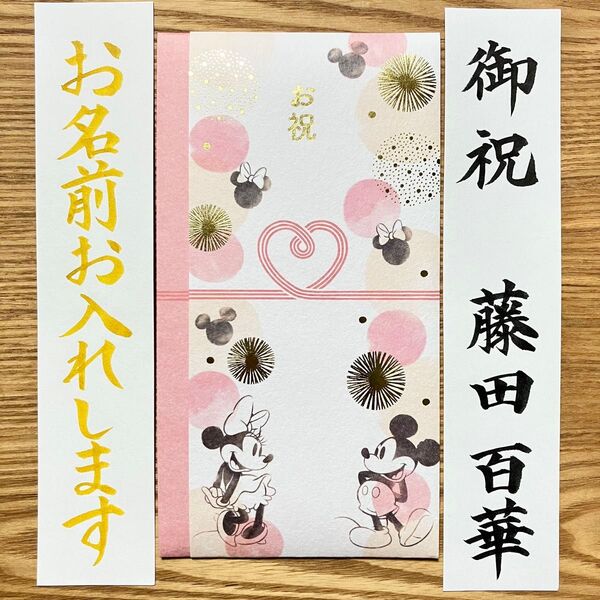 御祝
藤田百華
お祝
お名前お入れします